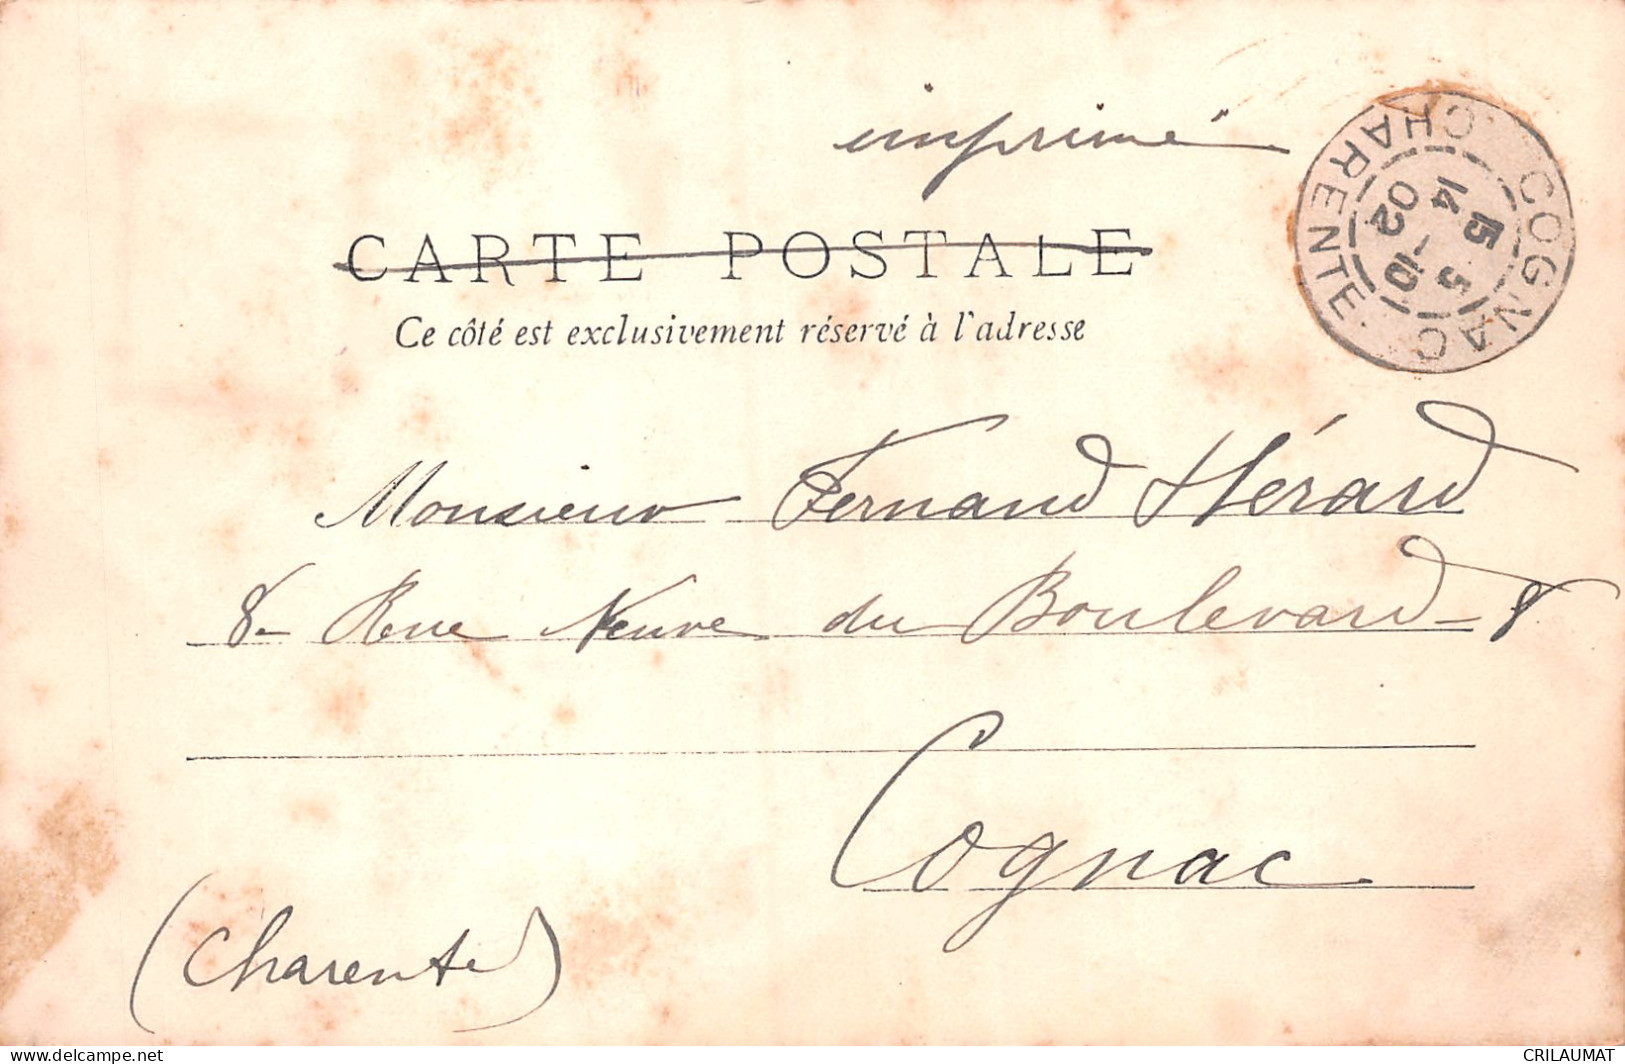 imprimé
CARTE POSTALE
Ce côté est exclusivement réservé à l'adresse
COGNAC
CHARENTE
Monsieur Fernand Hérard
8 - Rue Neuve du Boulevard - 8
Cognac
(Charente)
www.delcampe.net
CRILAUMAT